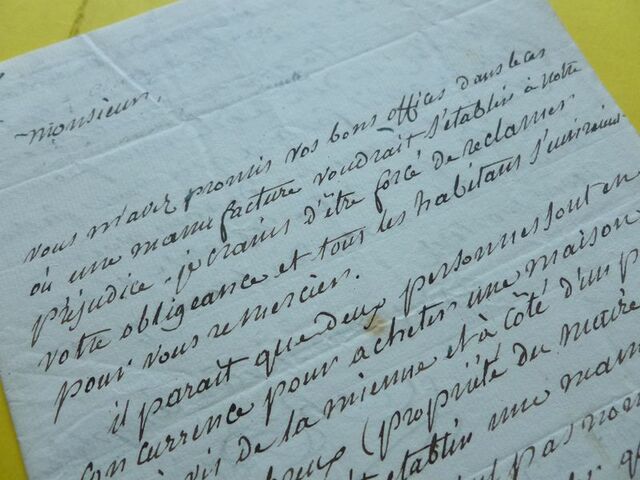 Monsieur,
vous m'avez promis vos bons offices dans le cas
où une manufacture voudrait s'établir à notre
préjudice. je crains d'être forcé de réclamer
votre obligeance et tous les habitans s'uniraient
pour vous remercier.
il parait que deux personnes sont en
concurrence pour acheter une maison
vis de la mienne et à côté d'un
(propriété du maire
établir une man
pas nom